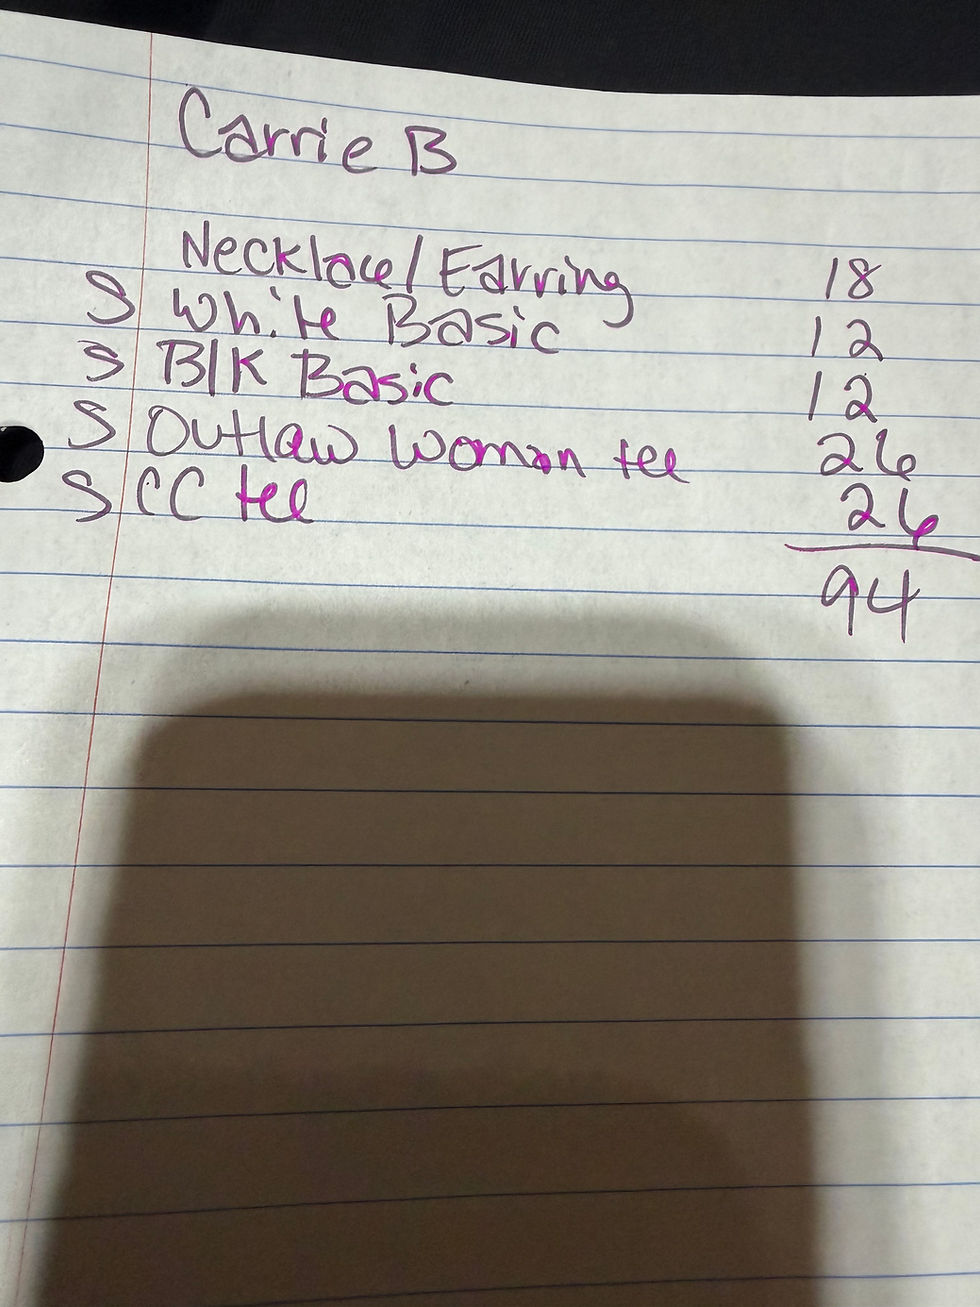 Carrie B
Necklace/Earring 18
S White Basic 12
S Blk Basic 12
S Outlaw Woman tee 26
S CC tee 26
94